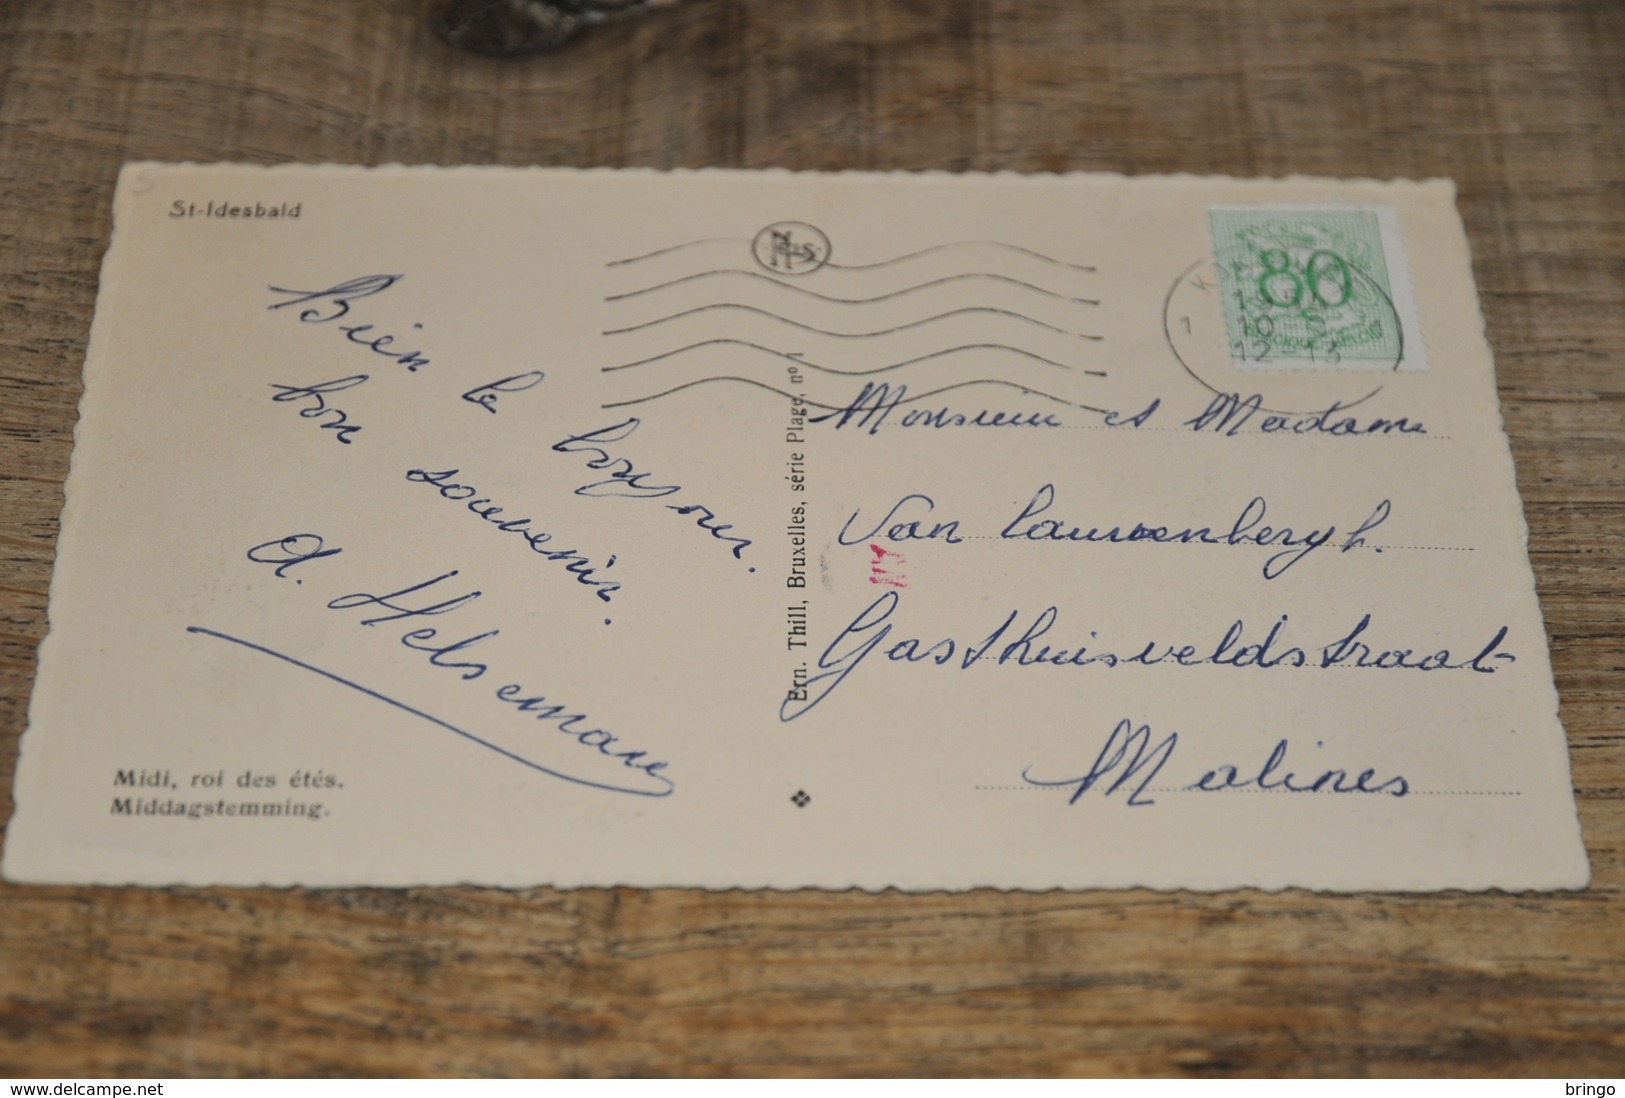 St-Idesbald
Bien le bonjour.
bon souvenir.
A. Helsemans
Midi, roi des étés.
Middagstemming.
Ern. Thill, Bruxelles, série Plage, nº 1
80
12-13
Monsieur et Madame
Van Cauwenbergh.
Gasthuisveldstraat
Malines
www.delcampe.net
bringo